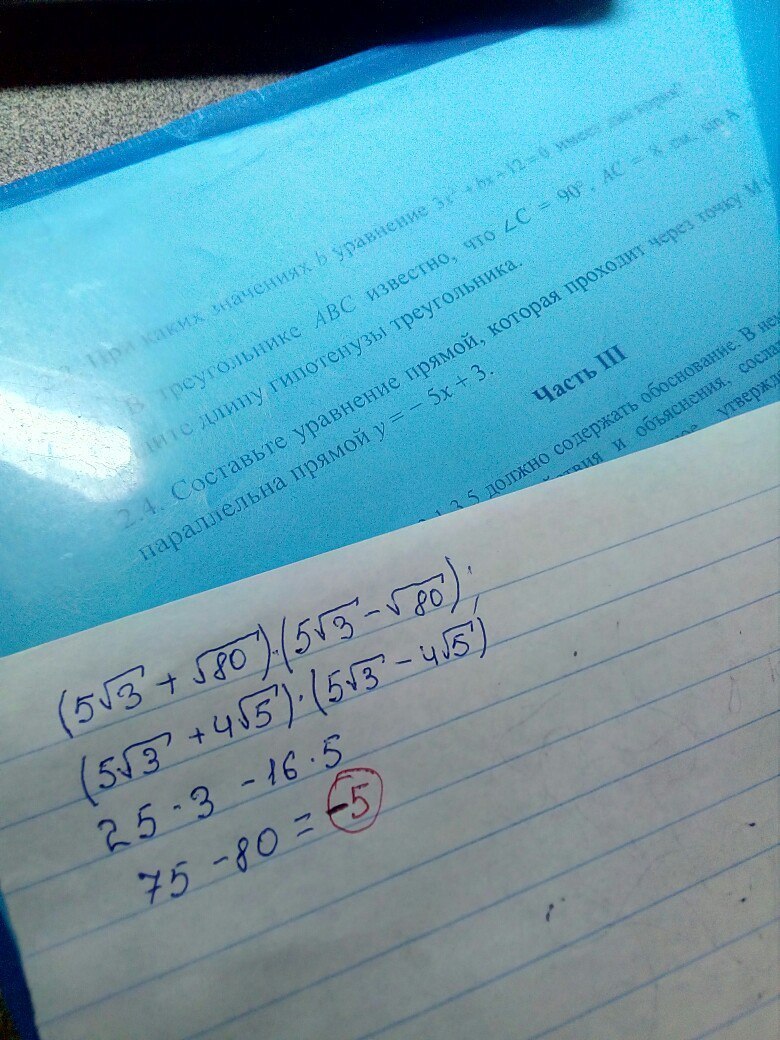 При каких значениях b уравнение 3x² + bx + 12 = 0 имеет два корня?
В треугольнике ABC известно, что ∠C = 90°, AC = 8 см, sin A
длину гипотенузы треугольника.
2.4. Составьте уравнение прямой, которая проходит через точку M
параллельна прямой y = – 5x + 3.
Часть III
3.5 должно содержать обоснование. В
и объяснения,
(5√3 + √80)·(5√3 – √80);
(5√3 + 4√5)·(5√3 – 4√5)
25·3 – 16·5
75 – 80 = –5